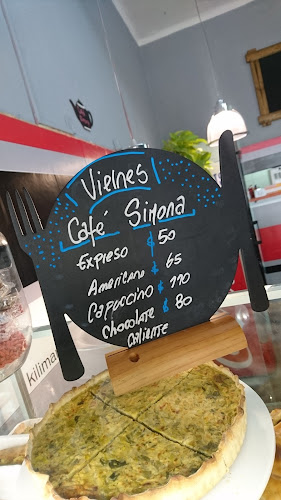 Viernes
Café Simona
Expreso $ 50
Americano $ 65
Capuccino $ 110
Chocolate $ 80
Caliente
kilima